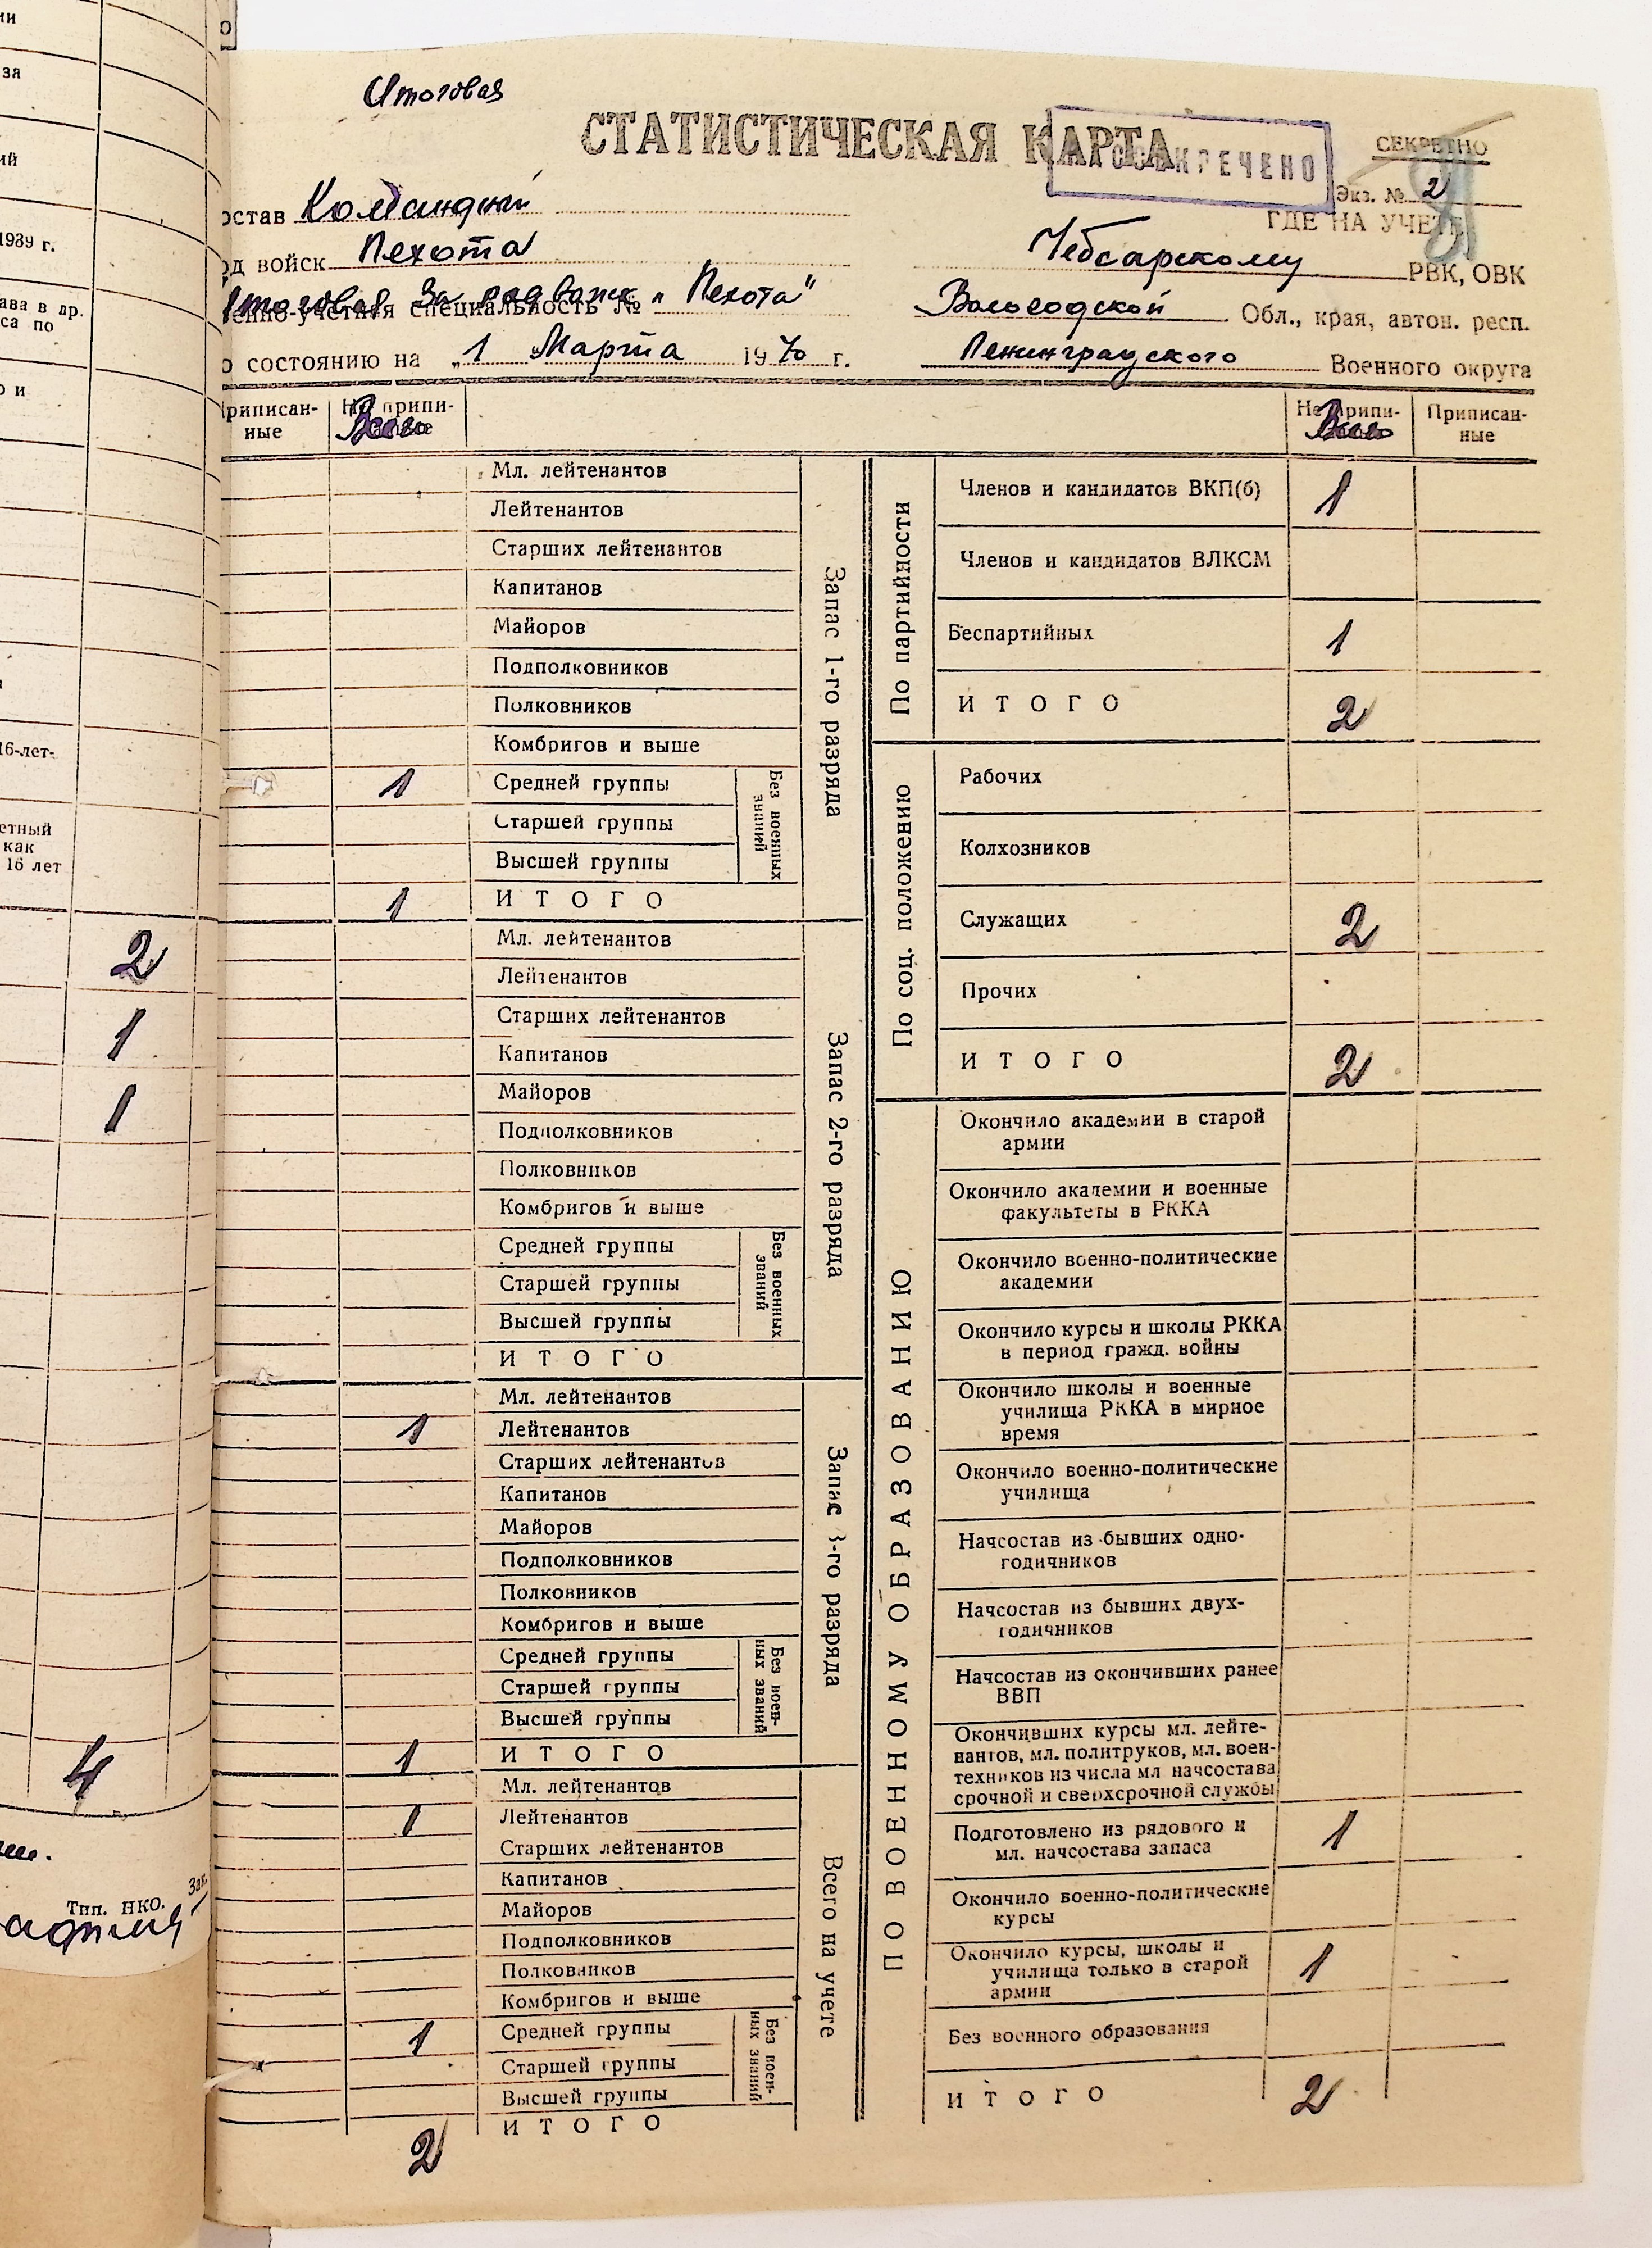 ии
за
ий
1939 г.
ава в др.
са по
о и
16-лет-
етный
как
16 лет
2
1
1
4
Зак.
Тип. НКО.
Итоговая
СТАТИСТИЧЕСКАЯ КАРТА
РАССЕКРЕЧЕНО
СЕКРЕТНО
Экз. № 2
ГДЕ НА УЧЕТЕ
остав Командный
од войск Пехота
Чебсарскому РВК, ОВК
Итоговая за род войск „Пехота"
енно-учетная специальность №
Вологодской Обл., края, автон. респ.
о состоянию на „1 Марта 1940 г.
Ленинградского Военного округа
Приписан-
ные
Не припи-
санные
Всего
Не припи-
санные
Всего
Приписан-
ные
Запас 1-го разряда
Мл. лейтенантов
Лейтенантов
Старших лейтенантов
Капитанов
Майоров
Подполковников
Полковников
Комбригов и выше
Без военных
званий
1 Средней группы
Старшей группы
Высшей группы
1 ИТОГО
Запас 2-го разряда
Мл. лейтенантов
Лейтенантов
Старших лейтенантов
Капитанов
Майоров
Подполковников
Полковников
Комбригов и выше
Без военных
званий
Средней группы
Старшей группы
Высшей группы
ИТОГО
Запас 3-го разряда
Мл. лейтенантов
1 Лейтенантов
Старших лейтенантов
Капитанов
Майоров
Подполковников
Полковников
Комбригов и выше
Без воен-
ных званий
Средней группы
Старшей группы
Высшей группы
1 ИТОГО
Всего на учете
Мл. лейтенантов
1 Лейтенантов
Старших лейтенантов
Капитанов
Майоров
Подполковников
Полковников
Комбригов и выше
Без воен-
ных званий
1 Средней группы
Старшей группы
Высшей группы
2 ИТОГО
По партийности
Членов и кандидатов ВКП(б) 1
Членов и кандидатов ВЛКСМ
Беспартийных 1
ИТОГО 2
По соц. положению
Рабочих
Колхозников
Служащих 2
Прочих
ИТОГО 2
ПО ВОЕННОМУ ОБРАЗОВАНИЮ
Окончило академии в старой
армии
Окончило академии и военные
факультеты в РККА
Окончило военно-политические
академии
Окончило курсы и школы РККА
в период гражд. войны
Окончило школы и военные
училища РККА в мирное
время
Окончило военно-политические
училища
Начсостав из бывших одно-
годичников
Начсостав из бывших двух-
годичников
Начсостав из окончивших ранее
ВВП
Окончивших курсы мл. лейте-
нантов, мл. политруков, мл. воен-
техников из числа мл начсостава
срочной и сверхсрочной службы
Подготовлено из рядового и
мл. начсостава запаса 1
Окончило военно-политические
курсы
Окончило курсы, школы и
училища только в старой
армии 1
Без военного образования
ИТОГО 2